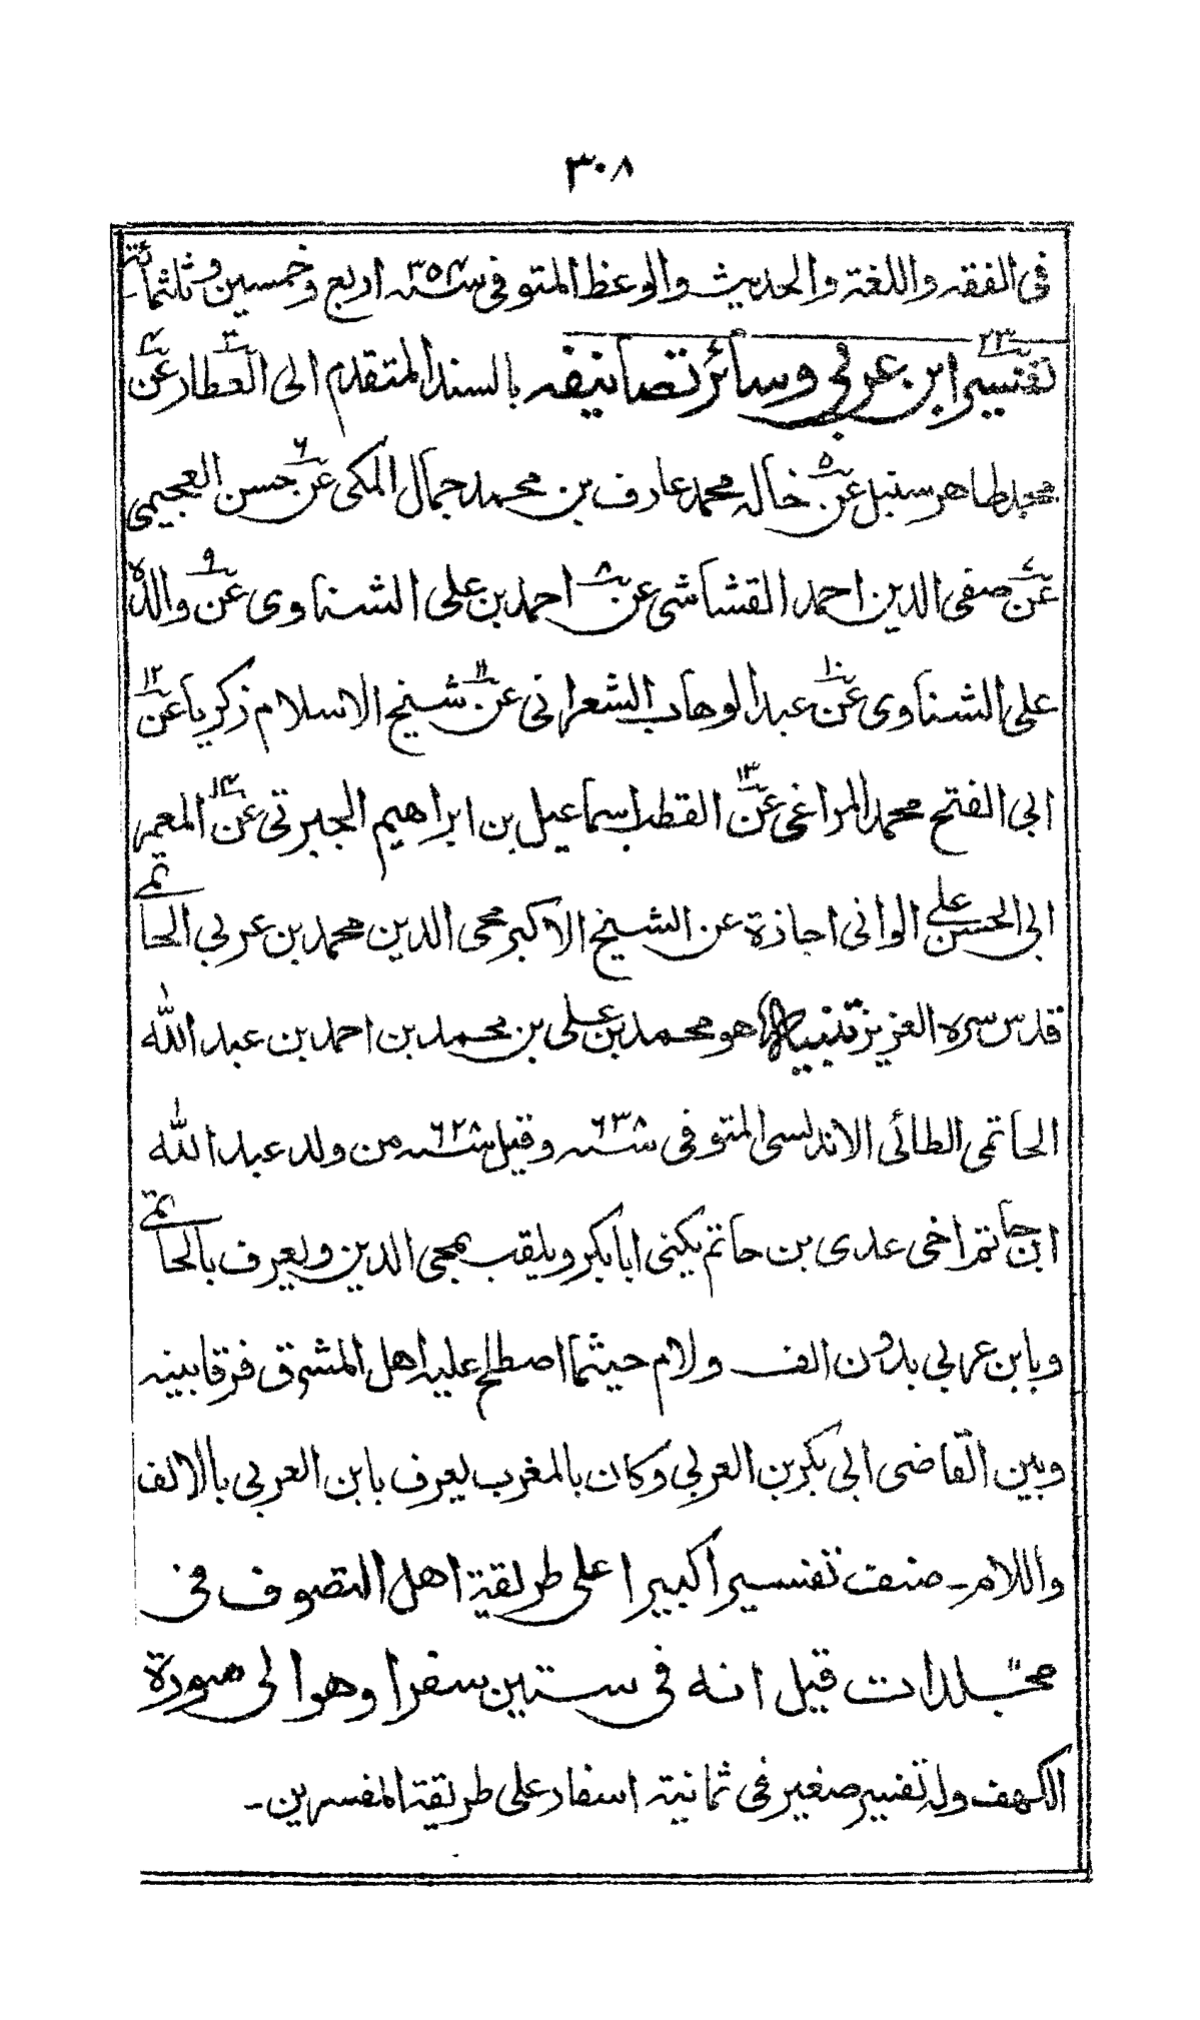 ٣٠٨
فى الفقه واللغة والحديث والوعظ المتوفى سنه ٣٥٤ اربع وخمسين وثلثمائة
٢٣ تفسير ابن عربي وسائر تصانيفه بالسند المتقدم الى ٣ العطار ٤ عن
محمد طاهر سنبل ٥ عن خاله محمد عارف بن محمد جمال المكى ٦ عن حسن العجيمى
٧ عن صفى الدين احمد القشاشى ٨ عن احمد بن على الشناوى ٩ عن والده
على الشناوى ١٠ عن عبد الوهاب الشعرانى ١١ عن شيخ الاسلام زكريا ١٢ عن
ابى الفتح محمد المراغى ١٣ عن القطب اسماعيل بن ابراهيم الجبرتى ١٤ عن المعمر
ابى الحسن على الوانى اجازة عن الشيخ الاكبر محى الدين محمد بن عربي الحاتمى
قدس سره العزيز تنبيه هو محمد بن على بن محمد بن احمد بن عبد الله
الحاتمى الطائى الاندلسى المتوفى سنه ٦٣٨ وقيل سنه ٦٢٨ من ولد عبد الله
ابن حاتم اخى عدى بن حاتم يكنى ابا بكر ويلقب بمحى الدين ويعرف بالحاتمى
وبابن عربي بدون الف ولام حيثما اصطلح عليه اهل المشرق فرقا بينه
وبين القاضى ابى بكر بن العربي وكان بالمغرب يعرف بابن العربي بالالف
واللام ـ صنف تفسيرا كبيرا على طريقة اهل التصوف فى
مجلدات قيل انه فى ستين سفرا وهو الى صورة
الكهف وله تفسير صغير فى ثمانية اسفار على طريقة المفسرين ـ